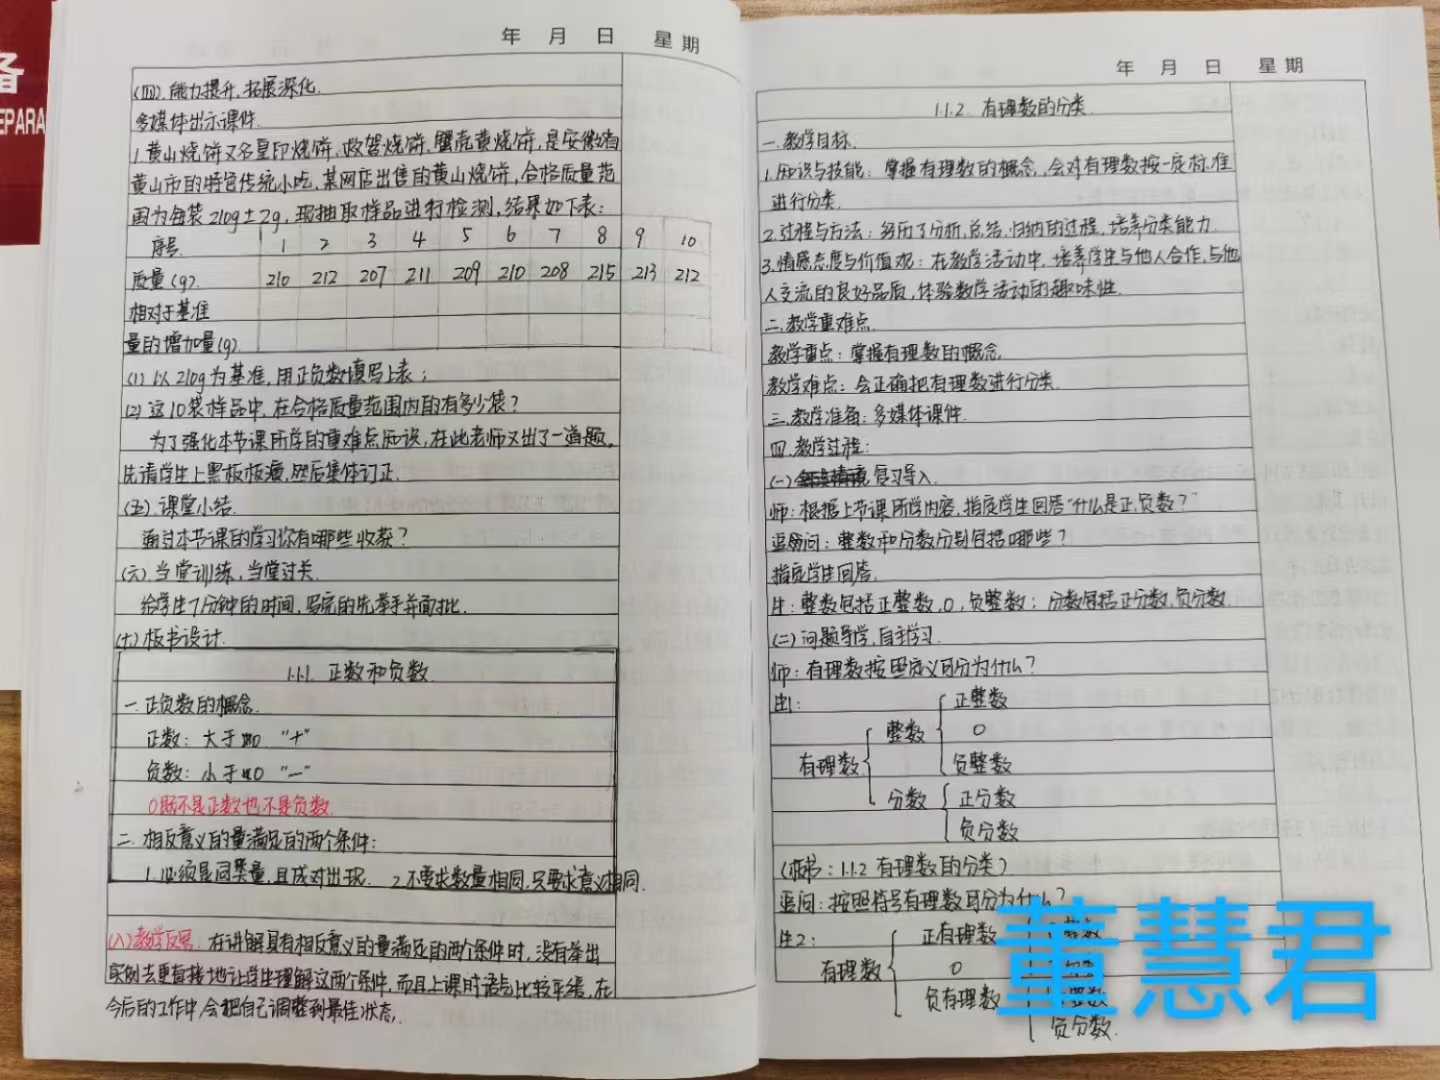 备
EPARA
年 月 日 星期
(四).能力提升,拓展深化.
多媒体出示课件.
1.黄山烧饼又名皇印烧饼,救驾烧饼,蟹壳黄烧饼,是安徽省
黄山市的特色传统小吃,某网店出售的黄山烧饼,合格质量范
围为每袋210g±2g,现抽取样品进行检测,结果如下表:
序号. 1 2 3 4 5 6 7 8 9 10
质量(g). 210 212 207 211 209 210 208 215 213 212
相对于基准
量的增加量(g).
(1)以210g为基准,用正负数填写上表;
(2)这10袋样品中,在合格质量范围内的有多少袋?
为了强化本节课所学的重难点知识,在此老师又出了一道题,
先请学生上黑板板演,然后集体订正.
(五).课堂小结.
通过本节课的学习你有哪些收获?
(六).当堂训练,当堂过关.
给学生7分钟的时间,写完的先举手并面批.
(七)板书设计.
1.1.1. 正数和负数.
一.正负数的概念.
正数:大于0 "+"
负数:小于0 "—"
0既不是正数也不是负数.
二.相反意义的量满足的两个条件:
1.必须是同类量,且成对出现. 2.不要求数量相同,只要求意义相同.
(八)教学反思.在讲解具有相反意义的量满足的两个条件时,没有举出
实例去更直接地让学生理解这两个条件.而且上课时语气比较平缓,在
今后的工作中,会把自己调整到最佳状态.
年 月 日 星期
1.1.2. 有理数的分类.
一.教学目标.
1.知识与技能:掌握有理数的概念,会对有理数按一定标准
进行分类.
2.过程与方法:经历了分析,总结,归纳的过程,培养分类能力.
3.情感态度与价值观:在教学活动中,培养学生与他人合作,与他
人交流的良好品质,体验数学活动的趣味性.
二.教学重难点.
教学重点:掌握有理数的概念.
教学难点:会正确把有理数进行分类.
三.教学准备:多媒体课件.
四.教学过程:
(一)复习导入.
师:根据上节课所学内容,指定学生回答"什么是正,负数?"
追问:整数和分数分别包括哪些?
指定学生回答.
生:整数包括正整数,0,负整数;分数包括正分数,负分数.
(二)问题导学,自主学习.
师:有理数按照定义可分为什么?
生1:
正整数
整数 0
有理数 负整数
分数 正分数
负分数
(板书:1.1.2 有理数的分类)
追问:按照符号有理数可分为什么?
生2: 正有理数
有理数 0
负有理数
负分数.
董慧君